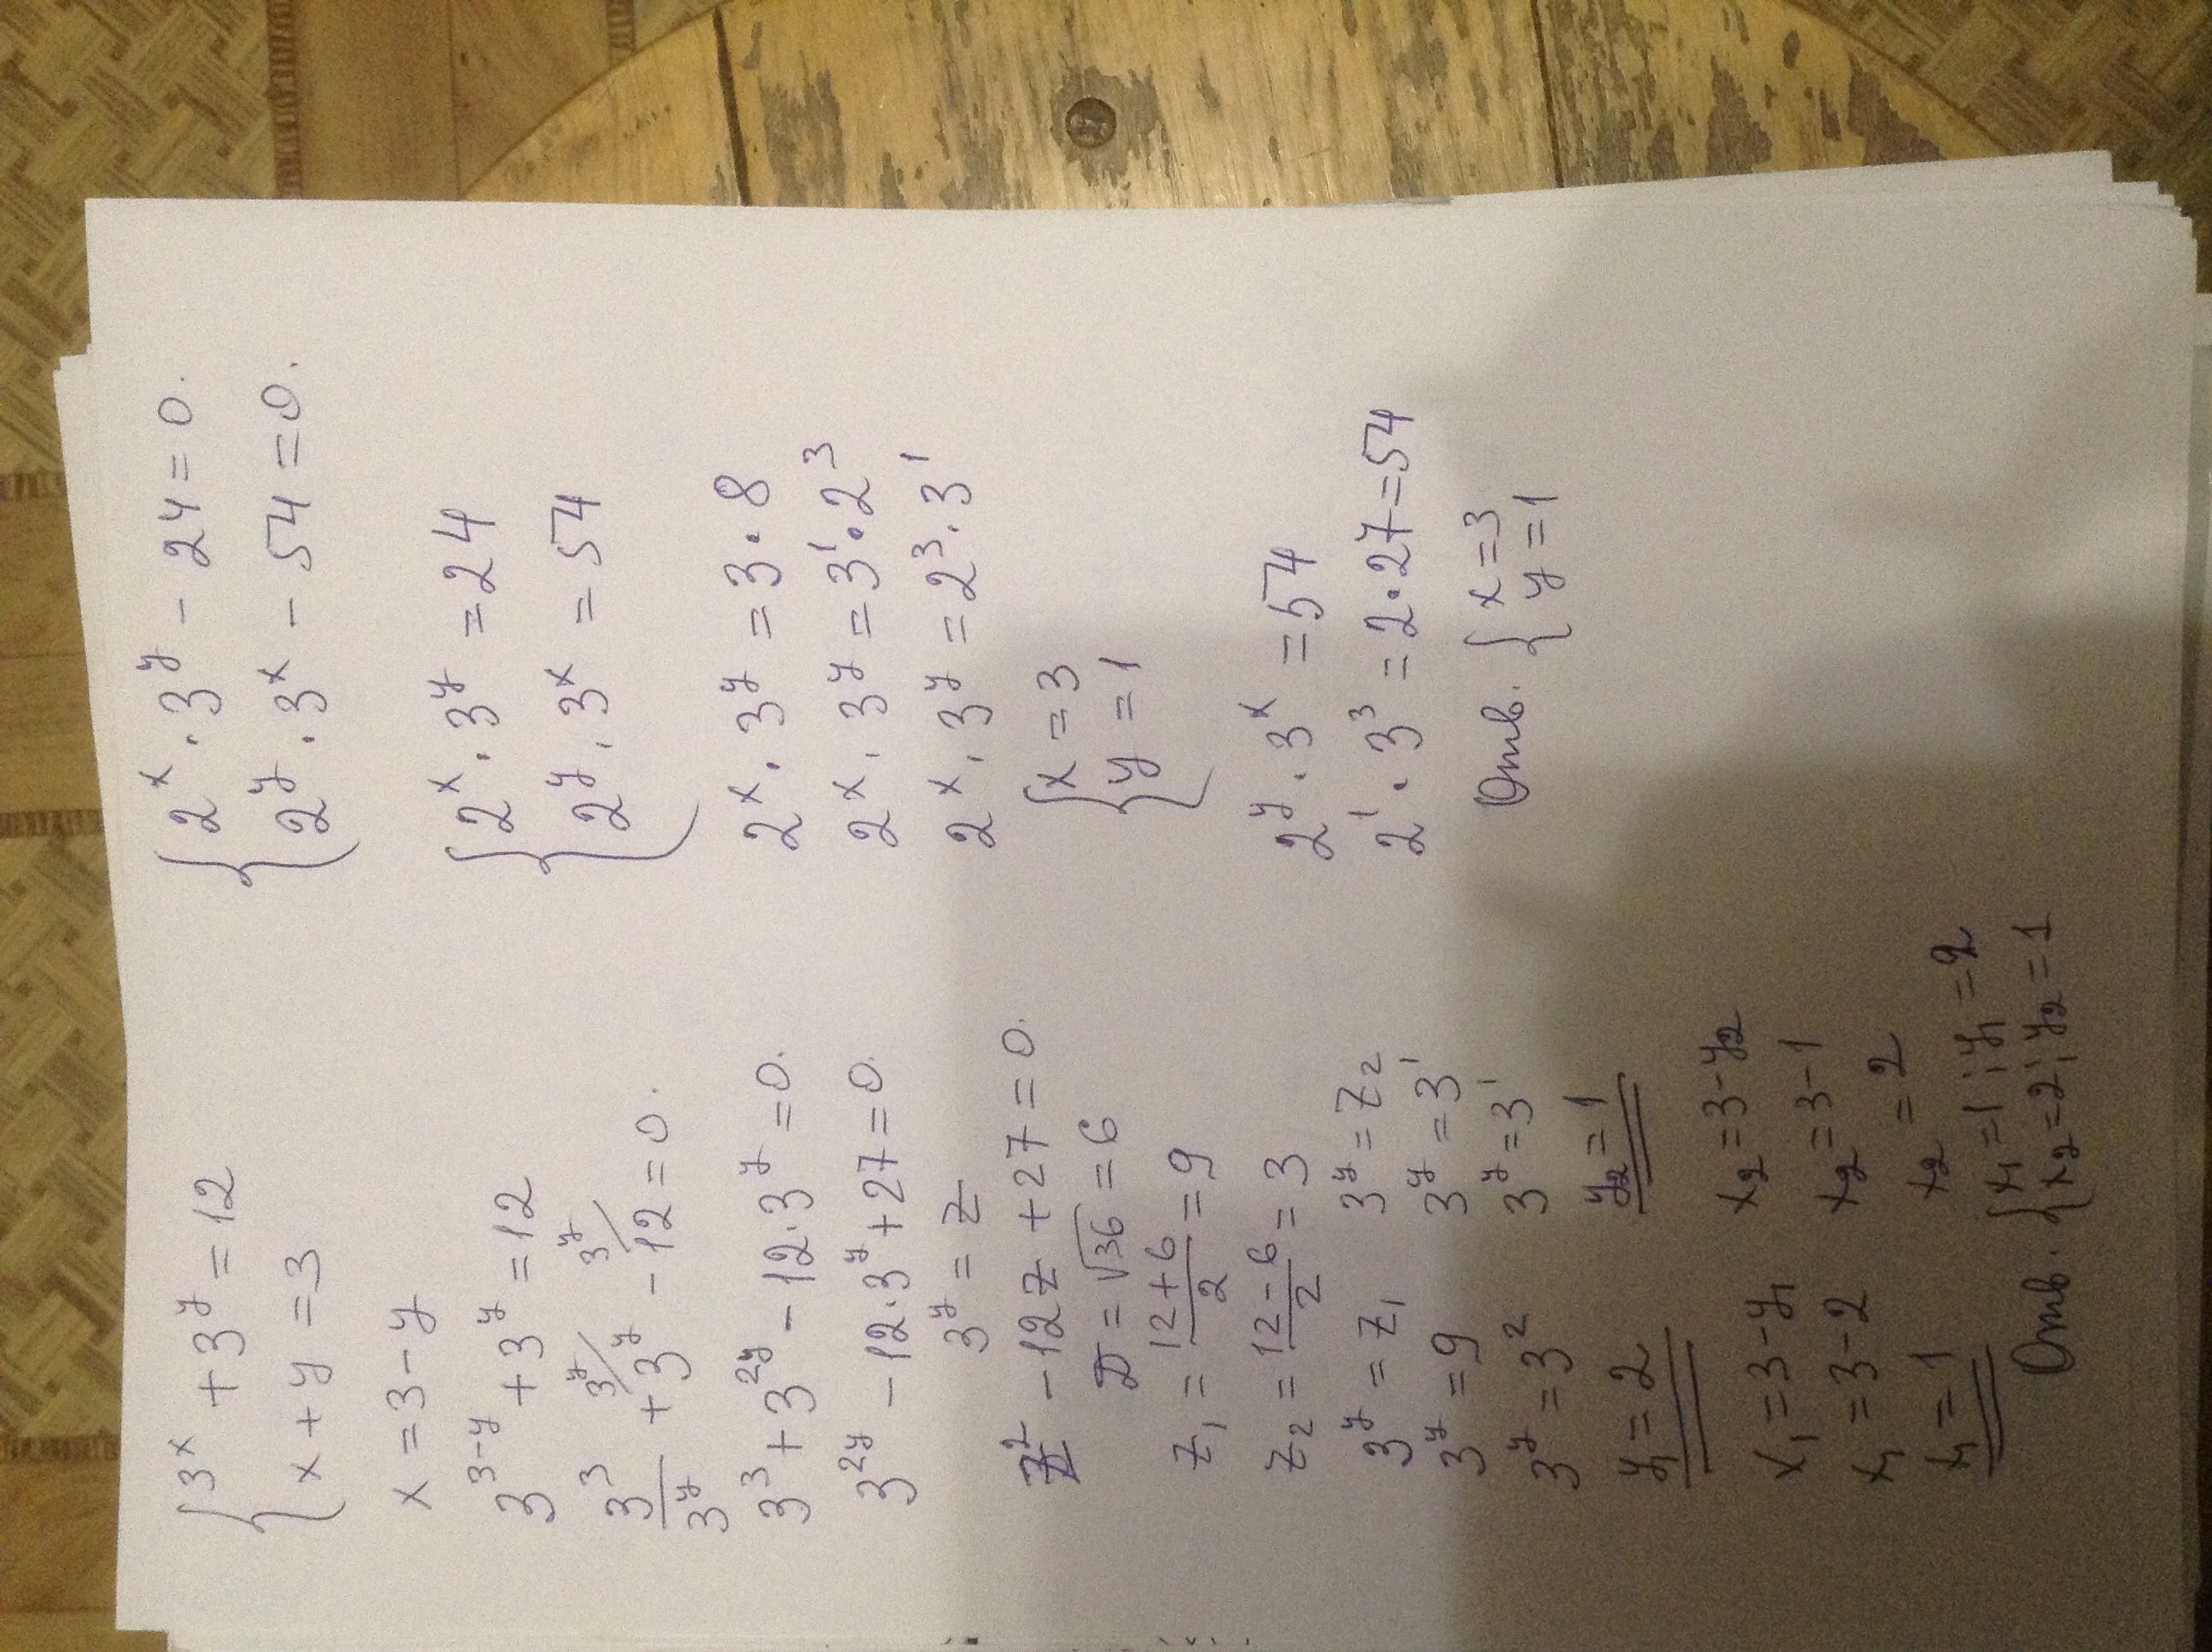 {3ˣ + 3ʸ = 12
x + y = 3
x = 3 - y
3³⁻ʸ + 3ʸ = 12
3³/3ʸ + 3ʸ - 12 = 0.
3³ + 3²ʸ - 12·3ʸ = 0.
3²ʸ - 12·3ʸ + 27 = 0.
3ʸ = z
z² - 12z + 27 = 0.
D = √36 = 6
z₁ = (12 + 6)/2 = 9
z₂ = (12 - 6)/2 = 3
3ʸ = z₁
3ʸ = 9
3ʸ = 3²
y₁ = 2
x₁ = 3 - y₁
x₁ = 3 - 2
x₁ = 1
3ʸ = z₂
3ʸ = 3¹
3ʸ = 3¹
y₂ = 1
x₂ = 3 - y₂
x₂ = 3 - 1
x₂ = 2
Отв. {x₁ = 1; y₁ = 2
x₂ = 2; y₂ = 1
{2ˣ · 3ʸ - 24 = 0.
2ʸ · 3ˣ - 54 = 0.
{2ˣ · 3ʸ = 24
2ʸ · 3ˣ = 54
2ˣ · 3ʸ = 3 · 8
2ˣ · 3ʸ = 3¹ · 2³
2ˣ · 3ʸ = 2³ · 3¹
{x = 3
y = 1
2ʸ · 3ˣ = 54
2¹ · 3³ = 2 · 27 = 54
Отв. {x = 3
y = 1